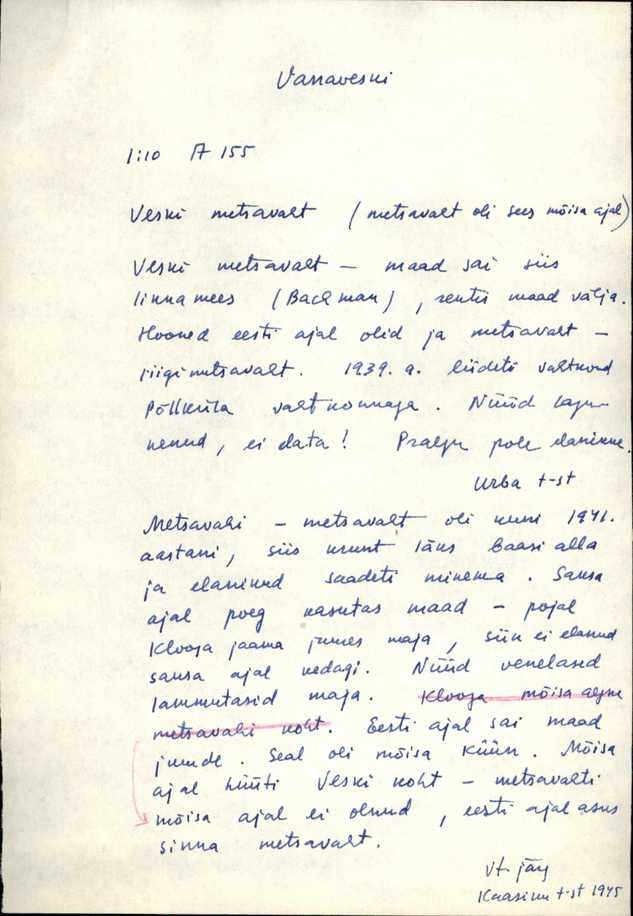 Vanaveski
1:10 A 155
Veski metsavaht (metsavaht oli sees mõisa ajal)
Veski metsavaht – maad sai siis
linna mees (Backman), rentis maad välja.
Hooned eesti ajal olid ja metsavaht –
riigimetsavaht. 1939. a. liideti vahtkond
Põllküla vahtkonnaga. Nüüd lagu-
nenud, ei elata! Praegu pole elanikke.
Urba t-st
Metsavahi – metsavaht oli kuni 1941.
aastani, siis krunt läks baasi alla
ja elanikud saadeti minema. Saksa
ajal poeg kasutas maad – pojal
Klooga jaama juures maja, siin ei elanud
saksa ajal kedagi. Nüüd venelased
lammutasid maja. Klooga mõisa algne
metsavahi koht. Eesti ajal sai maad
juurde. Seal oli mõisa küün. Mõisa
ajal hüüti Veski koht – metsavahti
mõisa ajal ei olnud, eesti ajal asus
sinna metsavaht.
vt. järg
t-st 1975